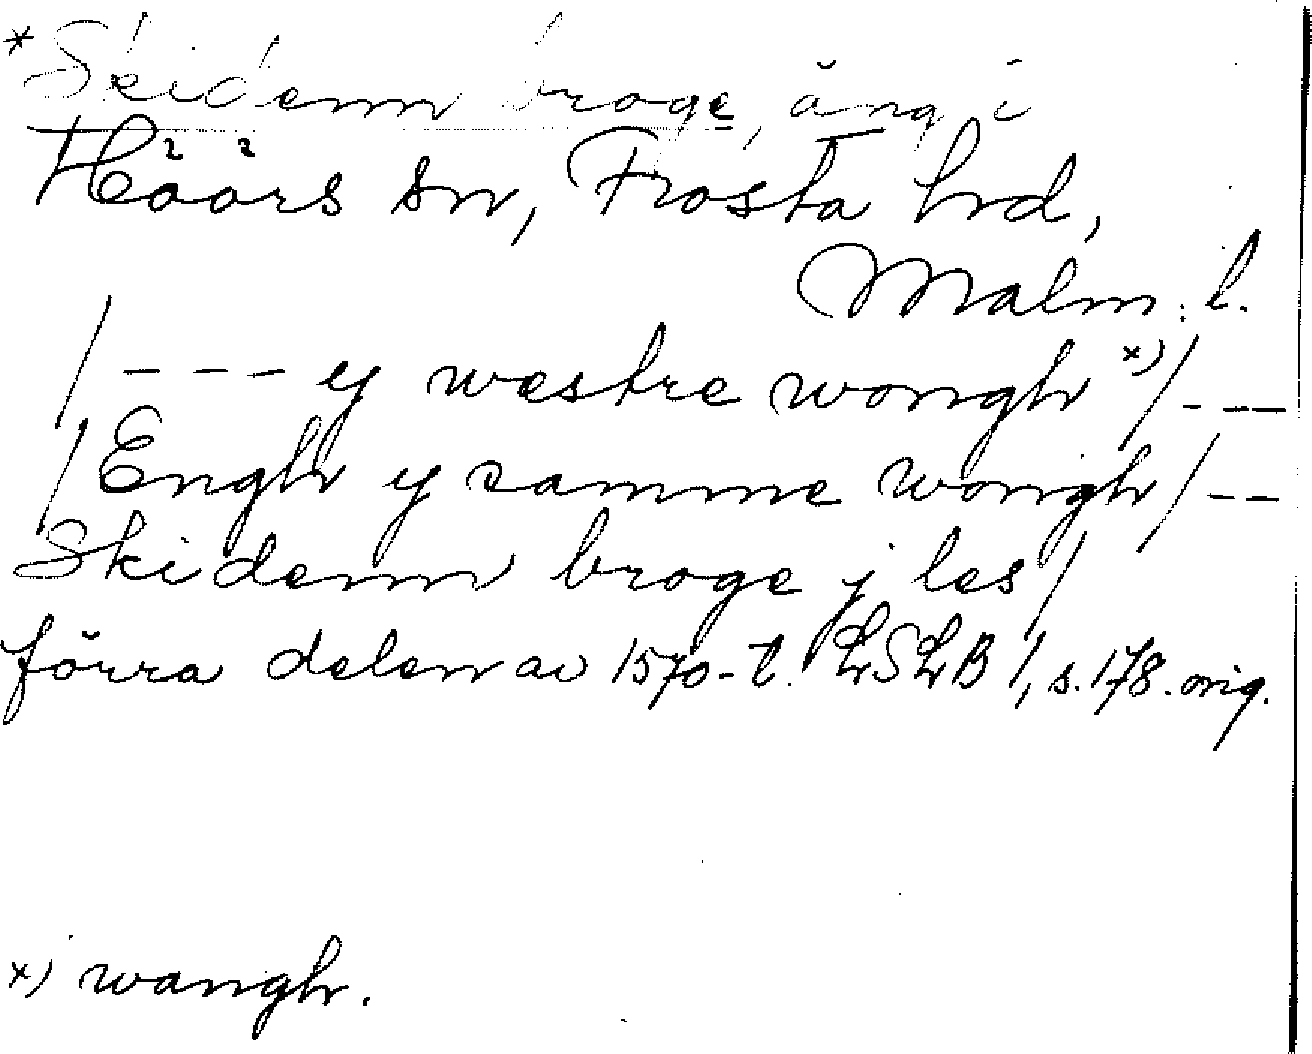 *Skidenn broge, äng i
Höörs sn, Frosta hrd,
Malm. l.
/--- y westre wongh x)/---
/Engh y samme wongh/--
Skidenn broge j les/
förra delen av 1570-t. LSLB 1, s. 178. orig.
x) wangh.